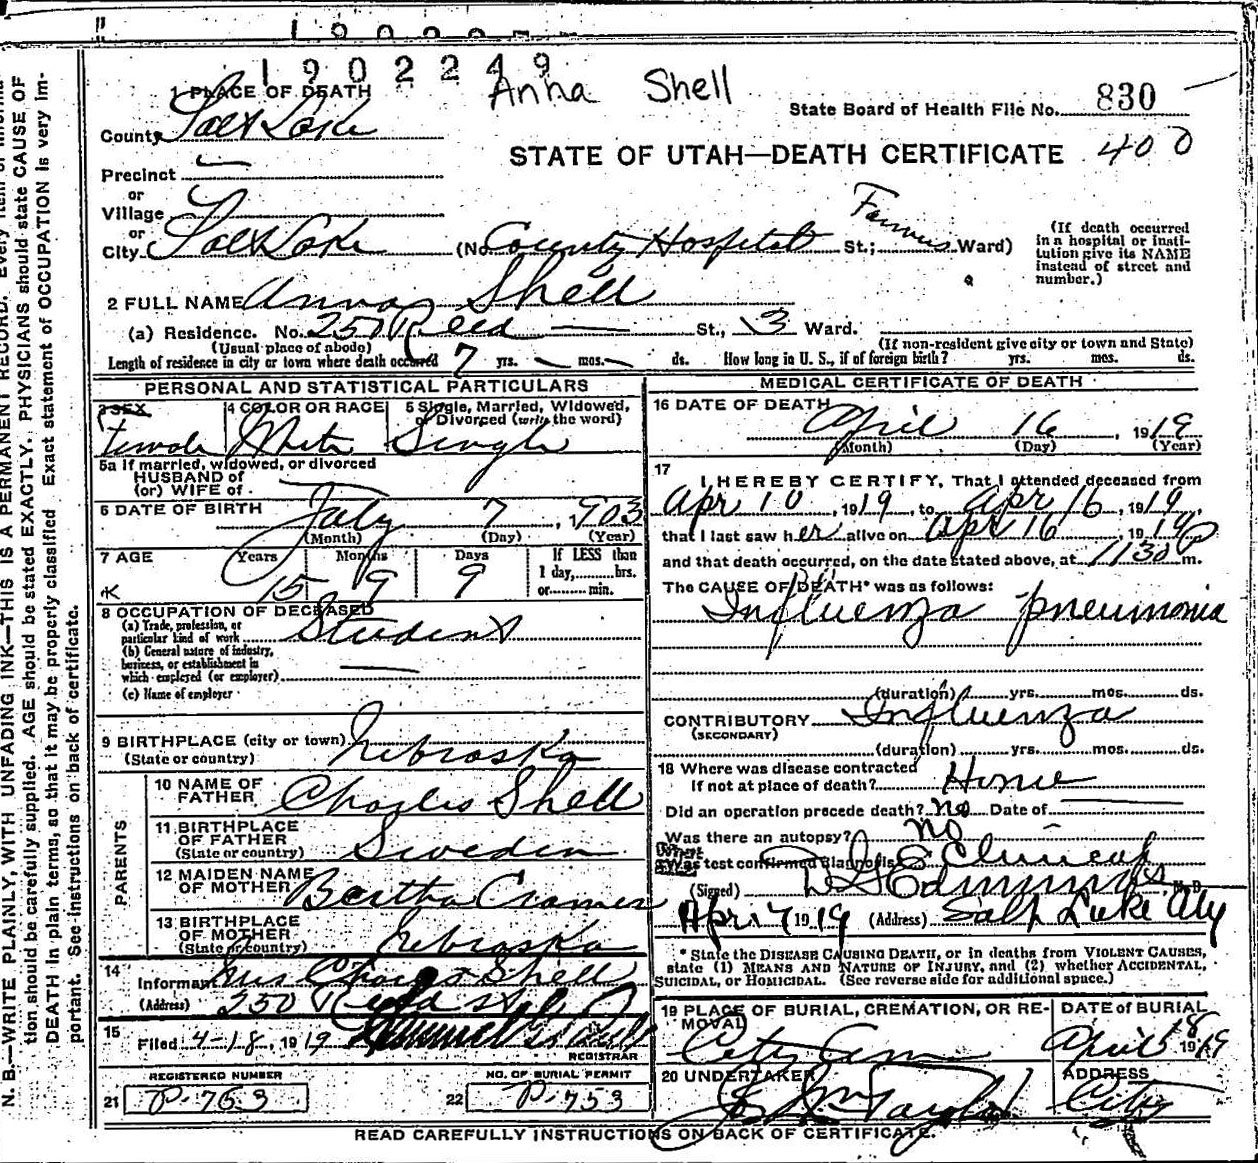 1902249
Anna Shell
1 PLACE OF DEATH
State Board of Health File No. 830
County Salt Lake
STATE OF UTAH—DEATH CERTIFICATE 400
Precinct
or
Village
or
City Salt Lake (No. County Hospital St.; Ward)
(If death occurred in a hospital or institution give its NAME instead of street and number.)
2 FULL NAME Anna Shell
(a) Residence. No. 250 Reed St., 3 Ward.
(Usual place of abode)
(If non-resident give city or town and State)
Length of residence in city or town where death occurred 7 yrs. — mos. — ds. How long in U. S., if of foreign birth? yrs. mos. ds.
PERSONAL AND STATISTICAL PARTICULARS
3 SEX
Female
4 COLOR OR RACE
White
5 Single, Married, Widowed, or Divorced (write the word)
Single
5a If married, widowed, or divorced
HUSBAND of
(or) WIFE of
6 DATE OF BIRTH July 7, 1903
(Month) (Day) (Year)
7 AGE Years Months Days If LESS than
15 9 9 1 day,........hrs.
or.........min.
8 OCCUPATION OF DECEASED
(a) Trade, profession, or particular kind of work Student
(b) General nature of industry, business, or establishment in which employed (or employer) —
(c) Name of employer
9 BIRTHPLACE (city or town) Nebraska
(State or country)
PARENTS
10 NAME OF FATHER Charles Shell
11 BIRTHPLACE OF FATHER Sweden
(State or country)
12 MAIDEN NAME OF MOTHER Bertha Cramer
13 BIRTHPLACE OF MOTHER Nebraska
(State or country)
14 Informant Mrs Charles Shell
(Address) 250 Reed
15 Filed 4-18, 1919
REGISTRAR
REGISTERED NUMBER
21 P-763
NO. OF BURIAL PERMIT
22 P-753
MEDICAL CERTIFICATE OF DEATH
16 DATE OF DEATH April 16, 1919
(Month) (Day) (Year)
17 I HEREBY CERTIFY, That I attended deceased from
Apr 10, 1919, to Apr 16, 1919,
that I last saw her alive on Apr 16 1919
and that death occurred, on the date stated above, at 1130 P m.
The CAUSE OF DEATH* was as follows:
Influenza pneumonia
(duration) yrs. mos. ds.
CONTRIBUTORY Influenza
(SECONDARY)
(duration) yrs. mos. ds.
18 Where was disease contracted
If not at place of death? Home
Did an operation precede death? no Date of —
Was there an autopsy? no
What test confirmed diagnosis? Clinical
(Signed) Edmunds, M. D.
Apr 17 1919 (Address) Salt Lake City
* State the DISEASE CAUSING DEATH, or in deaths from VIOLENT CAUSES, state (1) MEANS AND NATURE OF INJURY, and (2) whether ACCIDENTAL, SUICIDAL, OR HOMICIDAL. (See reverse side for additional space.)
19 PLACE OF BURIAL, CREMATION, OR REMOVAL
City Cem
DATE OF BURIAL
April 18 1919
20 UNDERTAKER
Taylor
ADDRESS
City
READ CAREFULLY INSTRUCTIONS ON BACK OF CERTIFICATE.
N. B.—WRITE PLAINLY, WITH UNFADING INK—THIS IS A PERMANENT RECORD. Every item of information should be carefully supplied. AGE should be stated EXACTLY. PHYSICIANS should state CAUSE OF DEATH in plain terms, so that it may be properly classified. Exact statement of OCCUPATION is very important. See instructions on back of certificate.